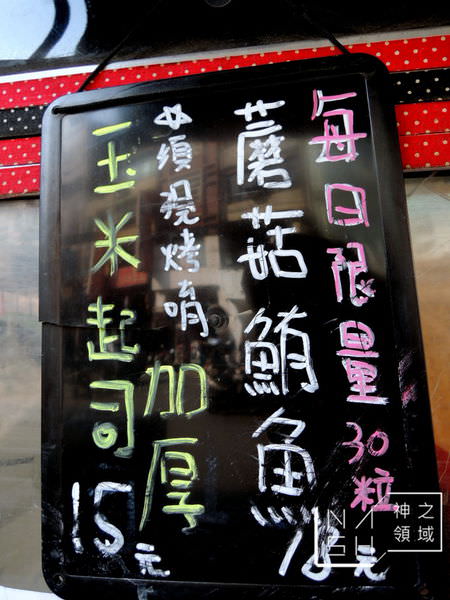 每日限量30粒
蘑菇鮪魚
18元
☆須現烤唷
加厚
玉米起司
15元
神之
領域